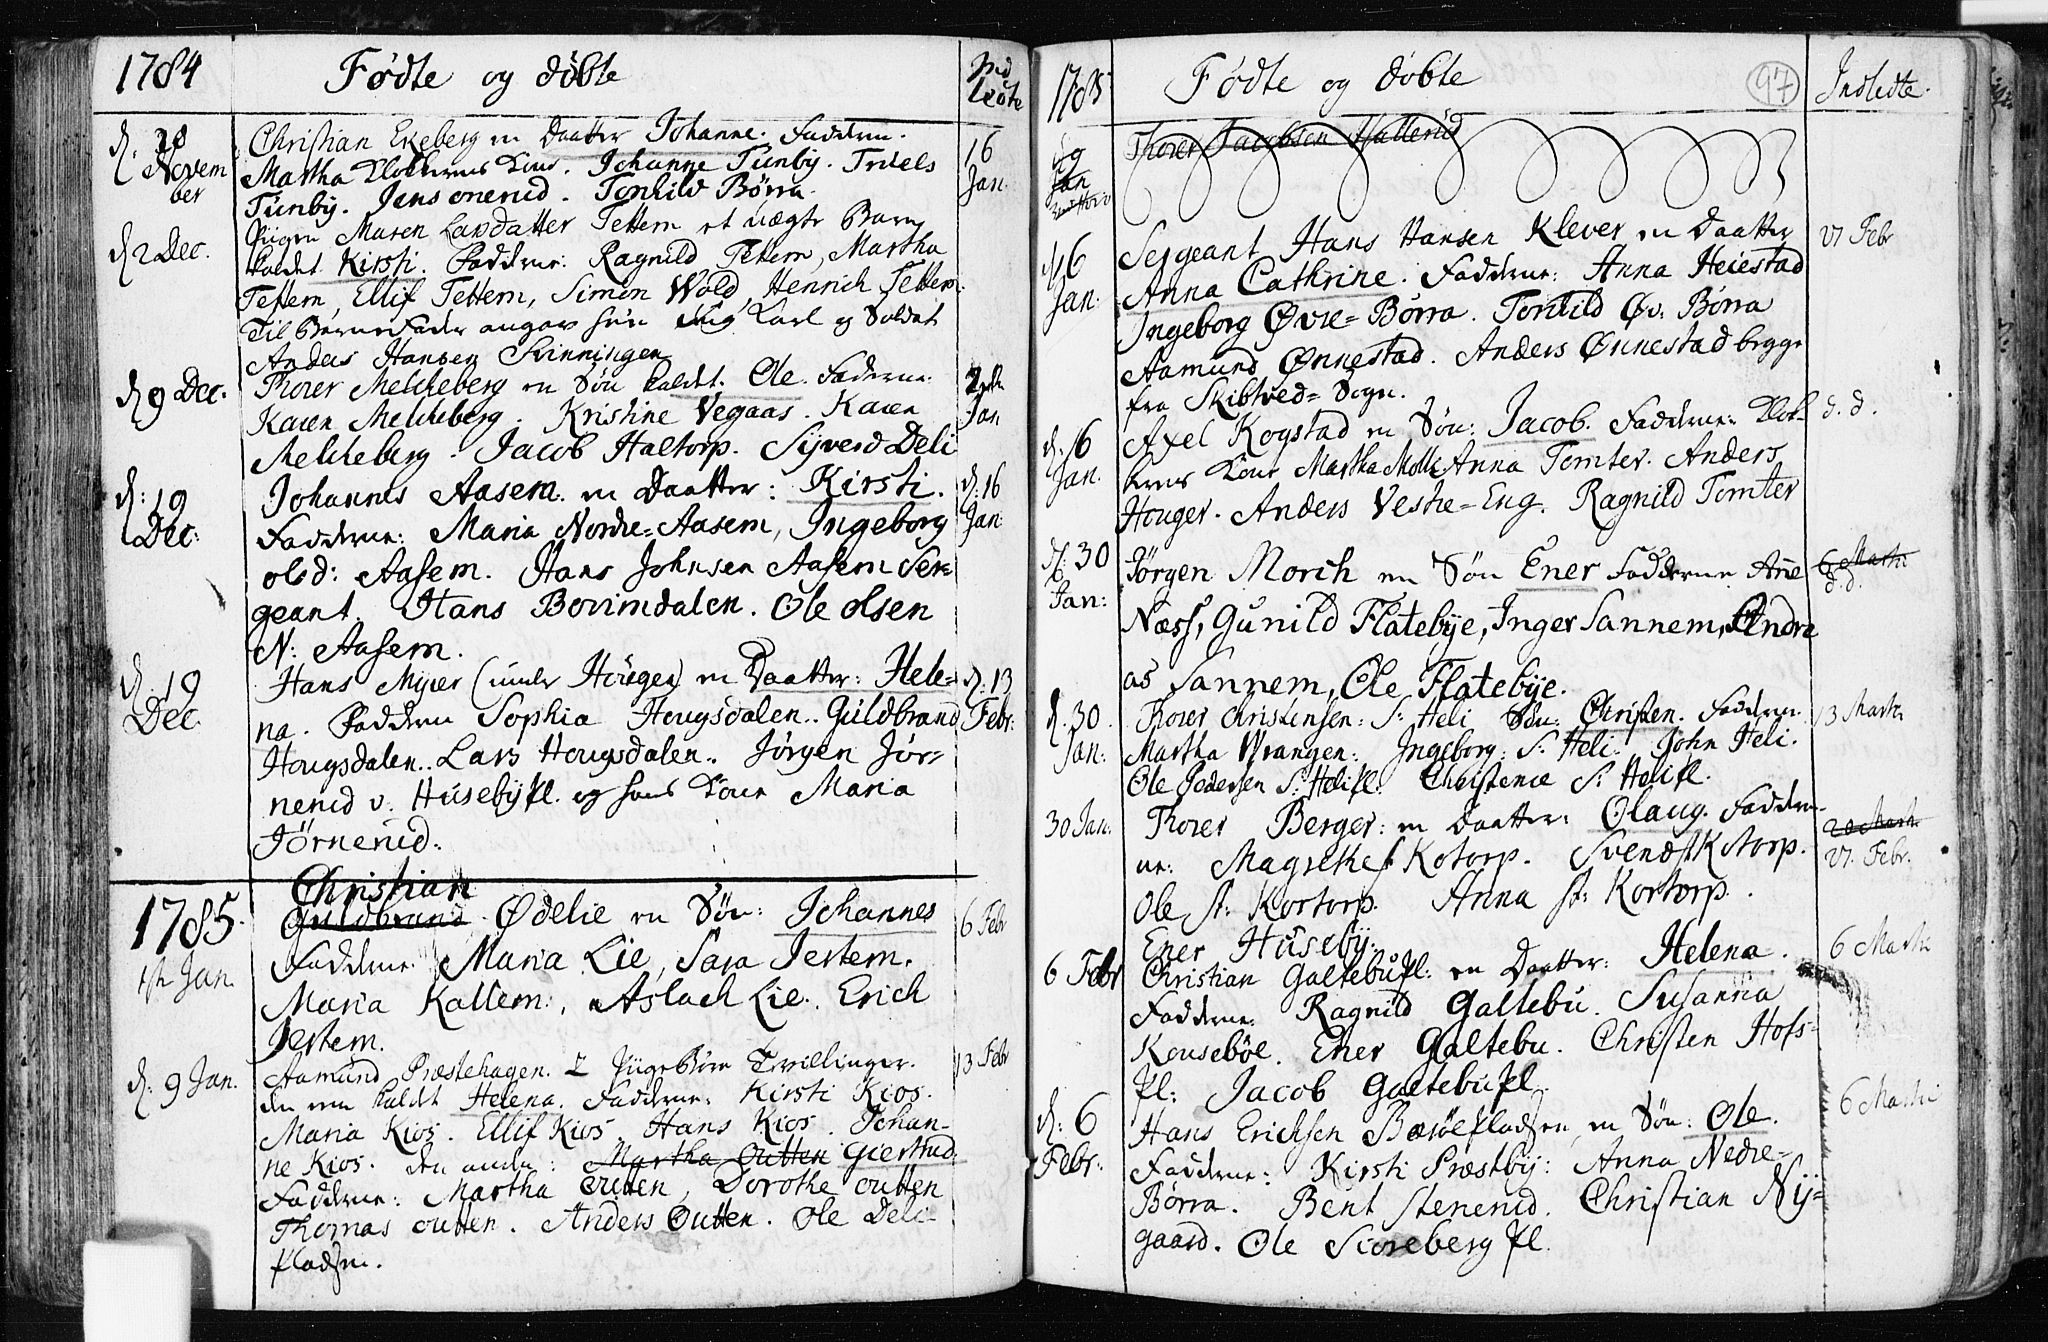 1784 Fødte og døbte Ind
ledte
d. 28 Christian Ekeberg en Daatter Johanne. Fadderne. 16
Novem Martha Klokkerens Kone. Johanne Tunby. Truels Jan.
ber Tunby. Jens onerud. Tonhild Børra.
d 2 Dec. Pigen Maren Larsdatter Tettem et uægte Barn
kaldet Kirsti. Fadderne: Ragnild Tettem, Martha
Tettem, Ellif Tettem, Simon Wold, Henrich Tettem.
Til Barnefader angav hun ung Karl og Soldat
Anders Hansen Svinningen
d 9 Dec. Thorer Melcheberg en Søn kaldet. Ole. Fadderne. 2den
Karen Melcheberg. Kristine Vegaas. Karen Jan
Melcheberg. Jacob Haltorp. Syverd Deli
d: 19 Johannes Aasem en Daatter: Kirsti. d: 16
Dec: Fadderne: Maria Nordre=Aasem, Ingeborg Jan
olsd: Aasem. Hans Johnsen Aasem Ser=
geant. Hans Bovimdalen. Ole olsen
N: Aasem.
d. 19 Hans Myrer (under Houger) en Daatter: Hele= d. 13
Dec. na. Fadderne Sophia Hougsdalen. Guldbrand Febr:
Hougsdalen. Lars Hougsdalen. Jørgen Jør=
nerud v. Husebypl. og hans Kone Maria
Jørnerud.
Christian
1785. Guldbrand Ødelie en Søn: Johannes 6 Febr
1st Jan. Fadderne. Maria Lie, Sara Jertem.
Maria Kallem., Aslach Lie. Erich
Jertem.
d. 9 Jan. Aamund Præstehagen. 2 Pigebørn Tvillinger. 13 Febr
den een kaldet Helena. Fadderne: Kirsti Kios.
Maria Kios. Ellif Kios. Hans Kios. Johan=
ne Kios. den anden: Martha Outten Giertrud.
Fadderne: Martha Outten, Dorothe outten
Thomas outten. Anders Outten. Ole Deli
pladsen.
1785 Fødte og døbte 97 Indledte.
Jan Thorer Jacobsen Hallerud
d 16 Sergeant Hans Hansen Klever en Daatter 27 Febr
Jan: Anna Cathrine. Fadderne: Anna Heiestad
Ingeborg Øvre=Børra. Tonhild Øv: Børra
Aamund Ønnestad. Anders Ønnestad begge
fra Skibtved=Sogn.
d. 16 Axel Kogstad en Søn: Jacob. Fadderne: Klok= d. d.
Jan. kerens Kone Martha Molle Anna Tomter. Anders
Houger. Anders Vestre=Eng. Ragnild Tomter
d: 30 Jørgen Morch en Søn Ener Fadderne Ane 6 Martii
Jan: Næss, Gunild Flatebye, Inger Sannem, Andre d. d.
as Sannem, Ole Flatebye.
d. 30. Thorer Christensen: S: Heli Søn: Christen. Fadderne 13 Martii
Jan: Martha Wrangen: Ingeborg: S: Heli. John Heli.
Ole Pedersen S: Helipl. Christence S: Helipl.
30 Jan: Thorer Berger: en Daatter: Olaug. Fadder= 20 Martii
ne: Magrethe St Kotorp. Svend St Kotorp. 27. Febr.
Ole St: Kortorp. Anna St: Kortorp.
Ener Huseby.
6 Febr Christian Galtebupl: en Daatter: Helena. 6 Martii
Fadderne: Ragnild Galtebu. Susanna
Kensebøe. Ener Galtebu. Christen Hofs=
pl: Jacob Galtebupl
d: 6 Hans Erichsen Børøepladsen, en Søn: Ole. 6 Martii
Febr: Fadderne: Kirsti Præstby: Anna Nedre=
Børra. Bent Stenerud. Christian Ny=
gaard. Ole Skoreberg pl.